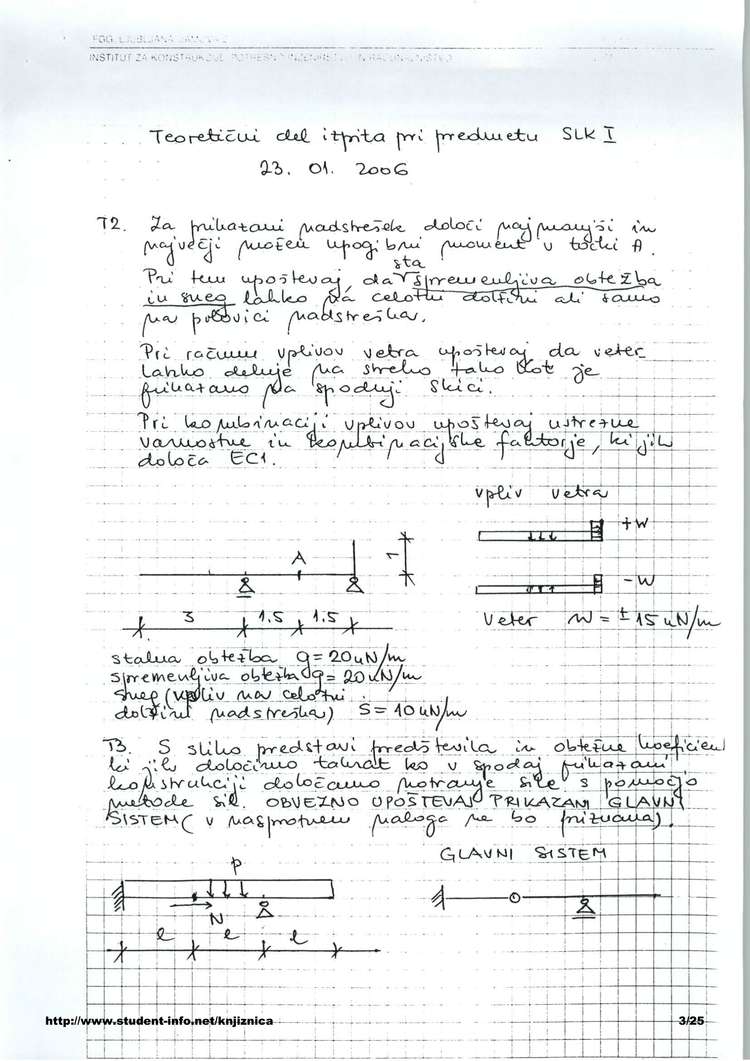 FGG, LJUBLJANA, JAMOVA 2
INSTITUT ZA KONSTRUKCIJE, POTRESNO INŽENIRSTVO IN RAČUNALNIŠTVO
Teoretični del izpita pri predmetu SLK I
23. 01. 2006
T2. Za prikazani nadstrešek določi najmanjši in
največji možen upogibni moment v točki A.
sta
Pri tem upoštevaj, da spremenljiva obtežba
in sneg lahko na celotni dolžini ali samo
na polovici nadstreška.
Pri računu vplivov vetra upoštevaj da veter
lahko deluje na streho tako kot je
prikazano na spodnji skici.
Pri kombinaciji vplivov upoštevaj ustrezne
varnostne in kombinacijske faktorje, ki jih
določa EC1.
vpliv vetra
+W
A
1
-W
3 1.5 1.5
Veter w = ± 15 kN/m
stalna obtežba g = 20 kN/m
spremenljiva obtežba q = 20 kN/m
sneg (vpliv na celotni
dolžini nadstreška) S = 10 kN/m
T3. S sliko predstavi predštevila in obtežne koeficien
ki jih določimo takrat ko v spodaj prikazani
konstrukciji določamo notranje sile s pomočjo
metode sil. OBVEZNO UPOŠTEVAJ PRIKAZANI GLAVNI
SISTEM (v nasprotnem naloga ne bo priznana).
GLAVNI SISTEM
p
N
l l l
http://www.student-info.net/knjiznica 3/25